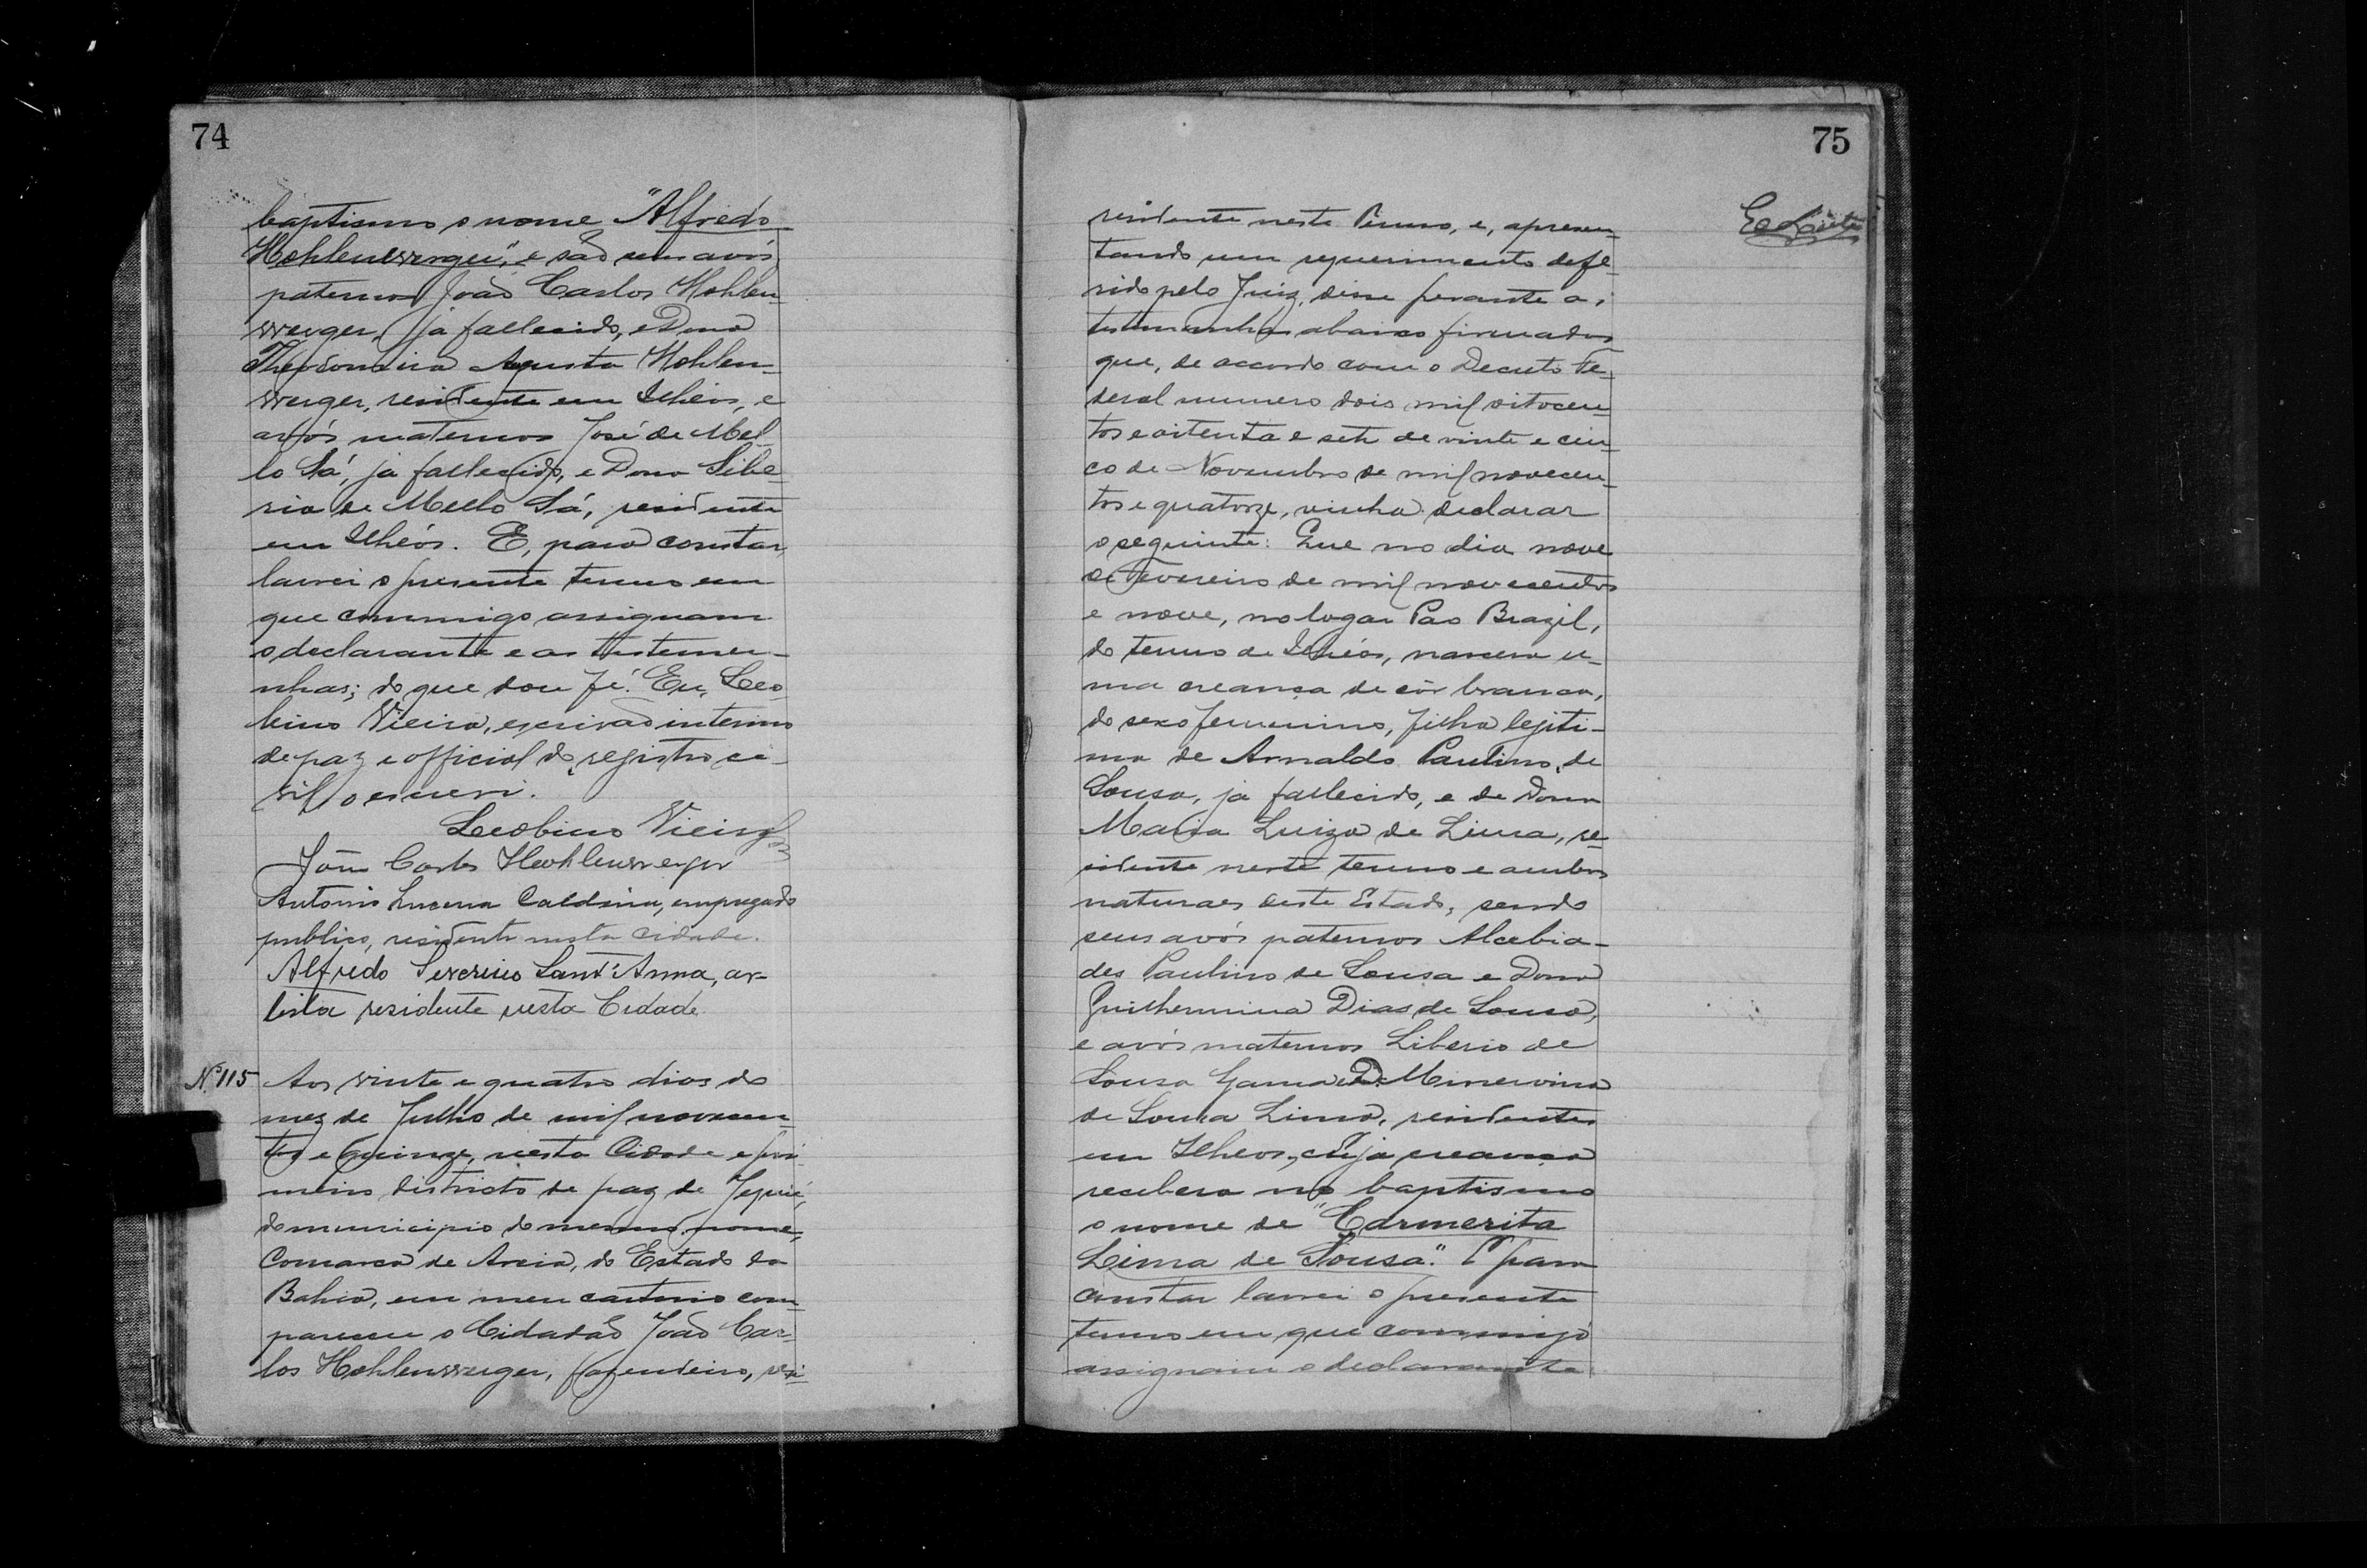 74
baptismo o nome "Alfredo
Hohlenwerger", e são seus avós
paternos João Carlos Hohlen-
werger, já fallecido, e Dona
Theodomira Agusta Hohlen-
werger, residente em Ilhéos, e
avós maternos José de Mel-
lo Sá, já fallecido, e Dona Libe-
ria de Mello Sá, residente
em Ilhéos. E, para constar,
lavrei o presente termo em
que commigo assignam
o declarante e as testemu-
nhas; do que dou fé. Eu, Leo-
bino Vieira, escrivão interino
de paz e official do registro ci-
vil o escrevi.
Leobino Vieira
João Carlos Hohlenwerger
Antonio Lucena Caldeira, empregado
publico, residente nesta cidade.
Alfredo Severino Sant'Anna, ar-
tista residente nesta Cidade
Nº 115 Aos vinte e quatro dias do
mez de Julho de mil novecen-
tos e quinze, nesta Cidade e pri-
meiro districto de paz de Jequié,
do municipio do mesmo nome,
Comarca de Areia, do Estado da
Bahia, em meu cartorio com-
pareceu o Cidadão João Car-
los Hohlenwerger, fazendeiro, resi-
75
sidente neste termo, e, apresen-
tando um requerimento defe-
rido pelo Juiz, disse perante as
testemunhas abaixo firmadas
que, de accordo com o Decreto Fe-
deral numero dois mil oitocen-
tos e oitenta e sete de vinte e cin-
co de Novembro de mil novecen-
tos e quatorze, vinha declarar
o seguinte: Que no dia nove
de Fevereiro de mil novecentos
e nove, no logar Pao Brazil,
do termo de Ilhéos, nasceu u-
ma creança de côr branca,
do sexo femenino, filha legiti-
ma de Arnaldo Paulino de
Sousa, já fallecido, e de Dona
Maria Luiza de Lima, re-
sidente neste termo e ambos
naturaes deste Estado, sendo
seus avós paternos Alcebia-
des Paulino de Sousa e Dona
Guilhermina Dias de Sousa,
e avós maternos Liberio de
Sousa Gama e D. Minervina
de Sousa Lima, residentes
em Ilheos, cuja creança
recebera no baptismo
o nome de "Carmerita
Lima de Sousa." E para
constar lavrei o presente
termo em que commigo
assignam o declarante